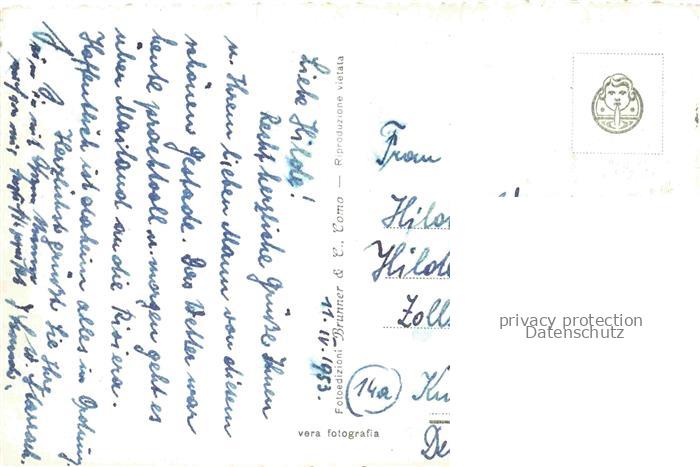 11. IV. 1953.
Liebe Hilde!
Recht herzliche Grüße Ihnen
u. Ihrem lieben Mann von diesem
schönen Gestade. Das Wetter war
heute prachtvoll u. morgen geht es
über Mailand an die Riviera.
Hoffentlich ist daheim alles in Ordnung.
Herzlichst grüßt Sie Ihre
Fotoedizioni Brunner & C., Como — Riproduzione vietata
vera fotografia
Frau
Hild
Hild
Zoll
14a
Ku
De
privacy protection
Datenschutz